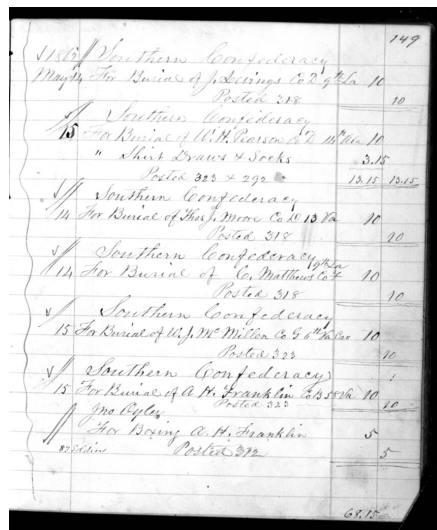 149
1862 Southern Confederacy
May 14 For Burial of J. Levings Co D 9th La 10
Posted 318 10
Southern Confederacy
15 For Burial of W. H. Pearson Co D 14th Ala 10
" Shirt Draws & Socks 3.15
Posted 323 & 292 13.15 13.15
Southern Confederacy
14 For Burial of Thos J. Moore Co D 13 Va 10
Posted 318 10
Southern Confederacy
14 For Burial of C. Matthews Co F 9th La 10
Posted 318 10
Southern Confederacy
15 For Burial of W. J. McMillen Co G 6th Va Cav 10
Posted 323 10
Southern Confederacy
15 For Burial of A H. Franklin Co B 58 Va 10
Posted 323 10
Jno
For Boxing A. H. Franklin 5
Posted 312 5
68.15